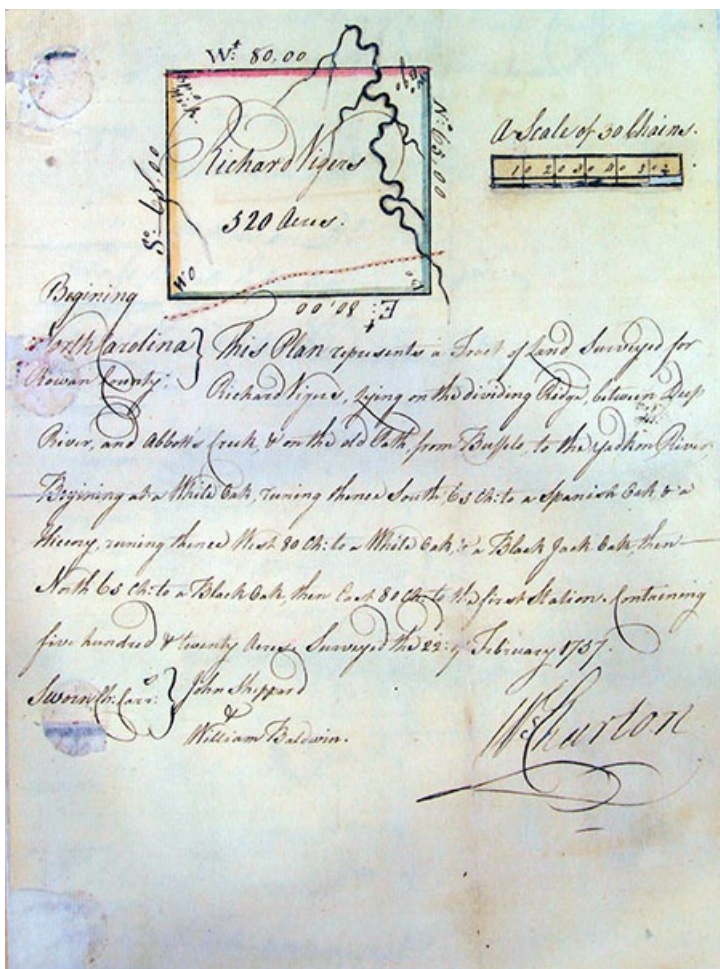 Wt. 80,00
No. 65,00
So. 65,00
Richard Vigers
520 Acres.
W:O
E:t 80,00
A Scale of 50 Chains.
10 20 30 40 50
Begining
North Carolina } This Plan represents a Tract of Land Surveyed for
Rowan County: Richard Vigers, lying on the dividing Ridge, between Deep
River, and Abbott's Creek, & on the old Path, from Buffelo, to the Yadkon River
Begining at a White Oak, runing thence South, 65 Ch: to a Spanish Oak & a
Hicory, runing thence West 80 Ch: to a White Oak, & a Black Jack Oak, then
North 65 Ch: to a Black Oak, then East 80 Ch: to the first Station. Containing
five hundred & twenty Acres Surveyed the 22: of February 1757.
Sworn Ch: Carrs. } John Sheppard
&
William Baldwin.
Ws Churton